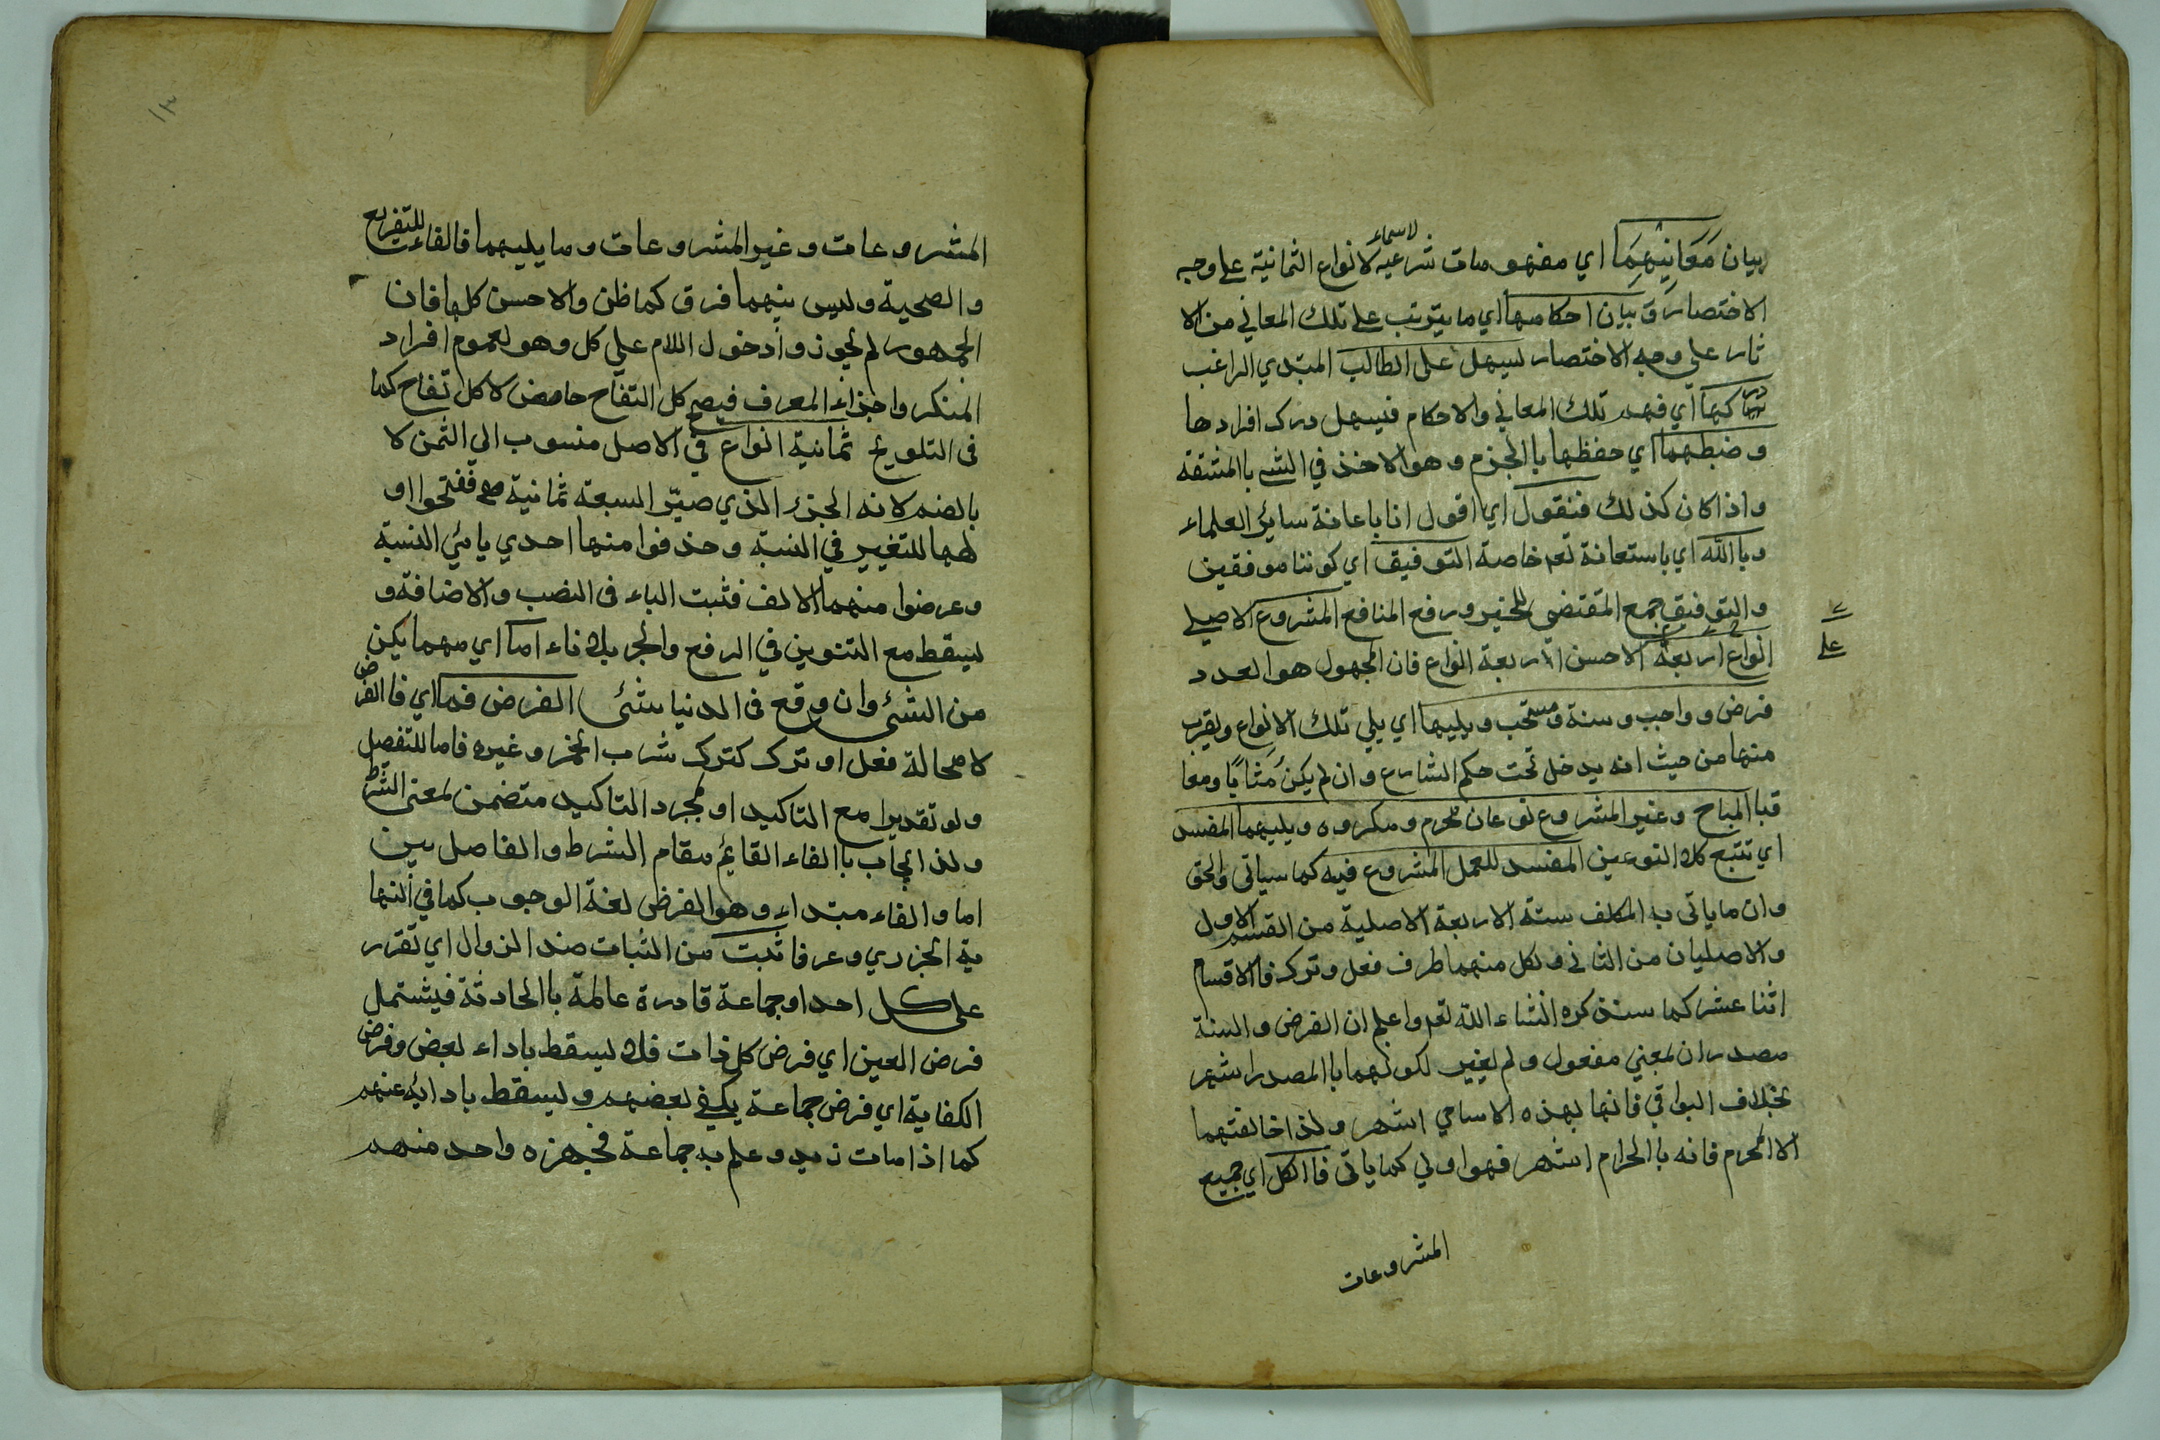 بيان مَعَانِيْهِمَا اي مفهومات شرعيه لاسماء لانواع الثمانية علي وجه
الاختصار وَ بيان احكامها اي ما يترتب علي تلك المعاني من الا
ثار علي وجه الاختصار ليسهل علي الطالب المبتدي الراغب
دركها اي فهم تلك المعاني والاحكام فيسهل درك افرادها
وضبطهما اي حفظها بالجزم وهو الاخذ في الشئ باالمشقة
واذا كان كذلك فنقول اي اقول انا باعانة سائر العلماء
وباالله اي باستعانة تعه خاصة التوفيق اي كوننا موفقين
والتوفيق جمع المقتضي للخير ورفع المنافع المشروع الاصلي
علي
انواع اربعة الاحسن اربعة انواع فان المجهول هو العدد
فرض وواجب وسنة ومستحب ويليها اي يلي تلك الانواع ويقرب
منها من حيث انه يدخل تحت حكم الشارع وان لم يكن مثابًا ومعا
قبا المباح وغير المشروع نوعان محرم ومكروه ويليهما المفسد
اي تتبع كلا النوعين المفسد للعمل المشروع فيه كما سياتي والحق
وان ما ياتي به المكلف ستة الاربعة الاصلية من القسم الاول
والاصليان من الثاني ولكل منهما طرف فعل وترك فاالاقسام
اثنا عشر كما ستذكره انشاء الله تعه واعلم ان الفرض والسنة
مصدران بمعني مفعول ولم يغير لكونهما باالمصدر اشهر
بخلاف البواقي فانها بهذه الاسامي اشهر ولذا خالفتهما
الا المحرم فانه باالحرام اشهر فهو اولي كما ياتي فاالكل اي جميع
المشروعات
١٣
المشروعات وغير المشروعات وما يليهما فالفاء للتفريع
والصحية وليس بينهما فرق كما ظن والاحسن كلها فان
الجمهور لم يجوزوا دخول اللام علي كل وهو لعموم افراد
المنكر واجزاء المعرف فيصح كل التفاح حامض لا كل تفاح كما
في التلويح ثمانية انواع في الاصل منسوب الي الثمن لا
بالضم لانه الجزء الذي صيّر السبعة ثمانية صح ففتحوا او
لها للتغيير في النسبة وحذفوا منها احدي يائي النسبة
وعرضوا منهما الالف فثبت الياء في النصب والاضافة و
يسقط مع التنوين في الرفع والجر بلا فاء اما اي مهما يكن
من الشئ وان وقع في الدنيا شئ الفرض فما اي فا الفرض
لا محالة فعل او ترك كترك شرب الخمر وغيره فاما للتفصل
ولو تقديرا مع التاكيد او لمجرد التاكيد متضمن لمعني الشرط
ولذا يجاب باالفاء القائم مقام الشرط والفاصل بين
اما والفاء مبتداء وهو الفرظ لغة الوجوب كما في النها
ية الجزري وعرفا ثبت من الثبات ضد الزوال اي تقرر
علي كل احد او جماعة قادرة عالمة باالحادثة فيشتمل
فرض العين اي فرض كل ذات فلا يسقط باداء بعض وفرض
الكفاية اي فرض جماعة يكفي بعضهم ويسقط بادائه عنهم
كما اذا مات زيد وعلم به جماعة فجهزه واحد منهم